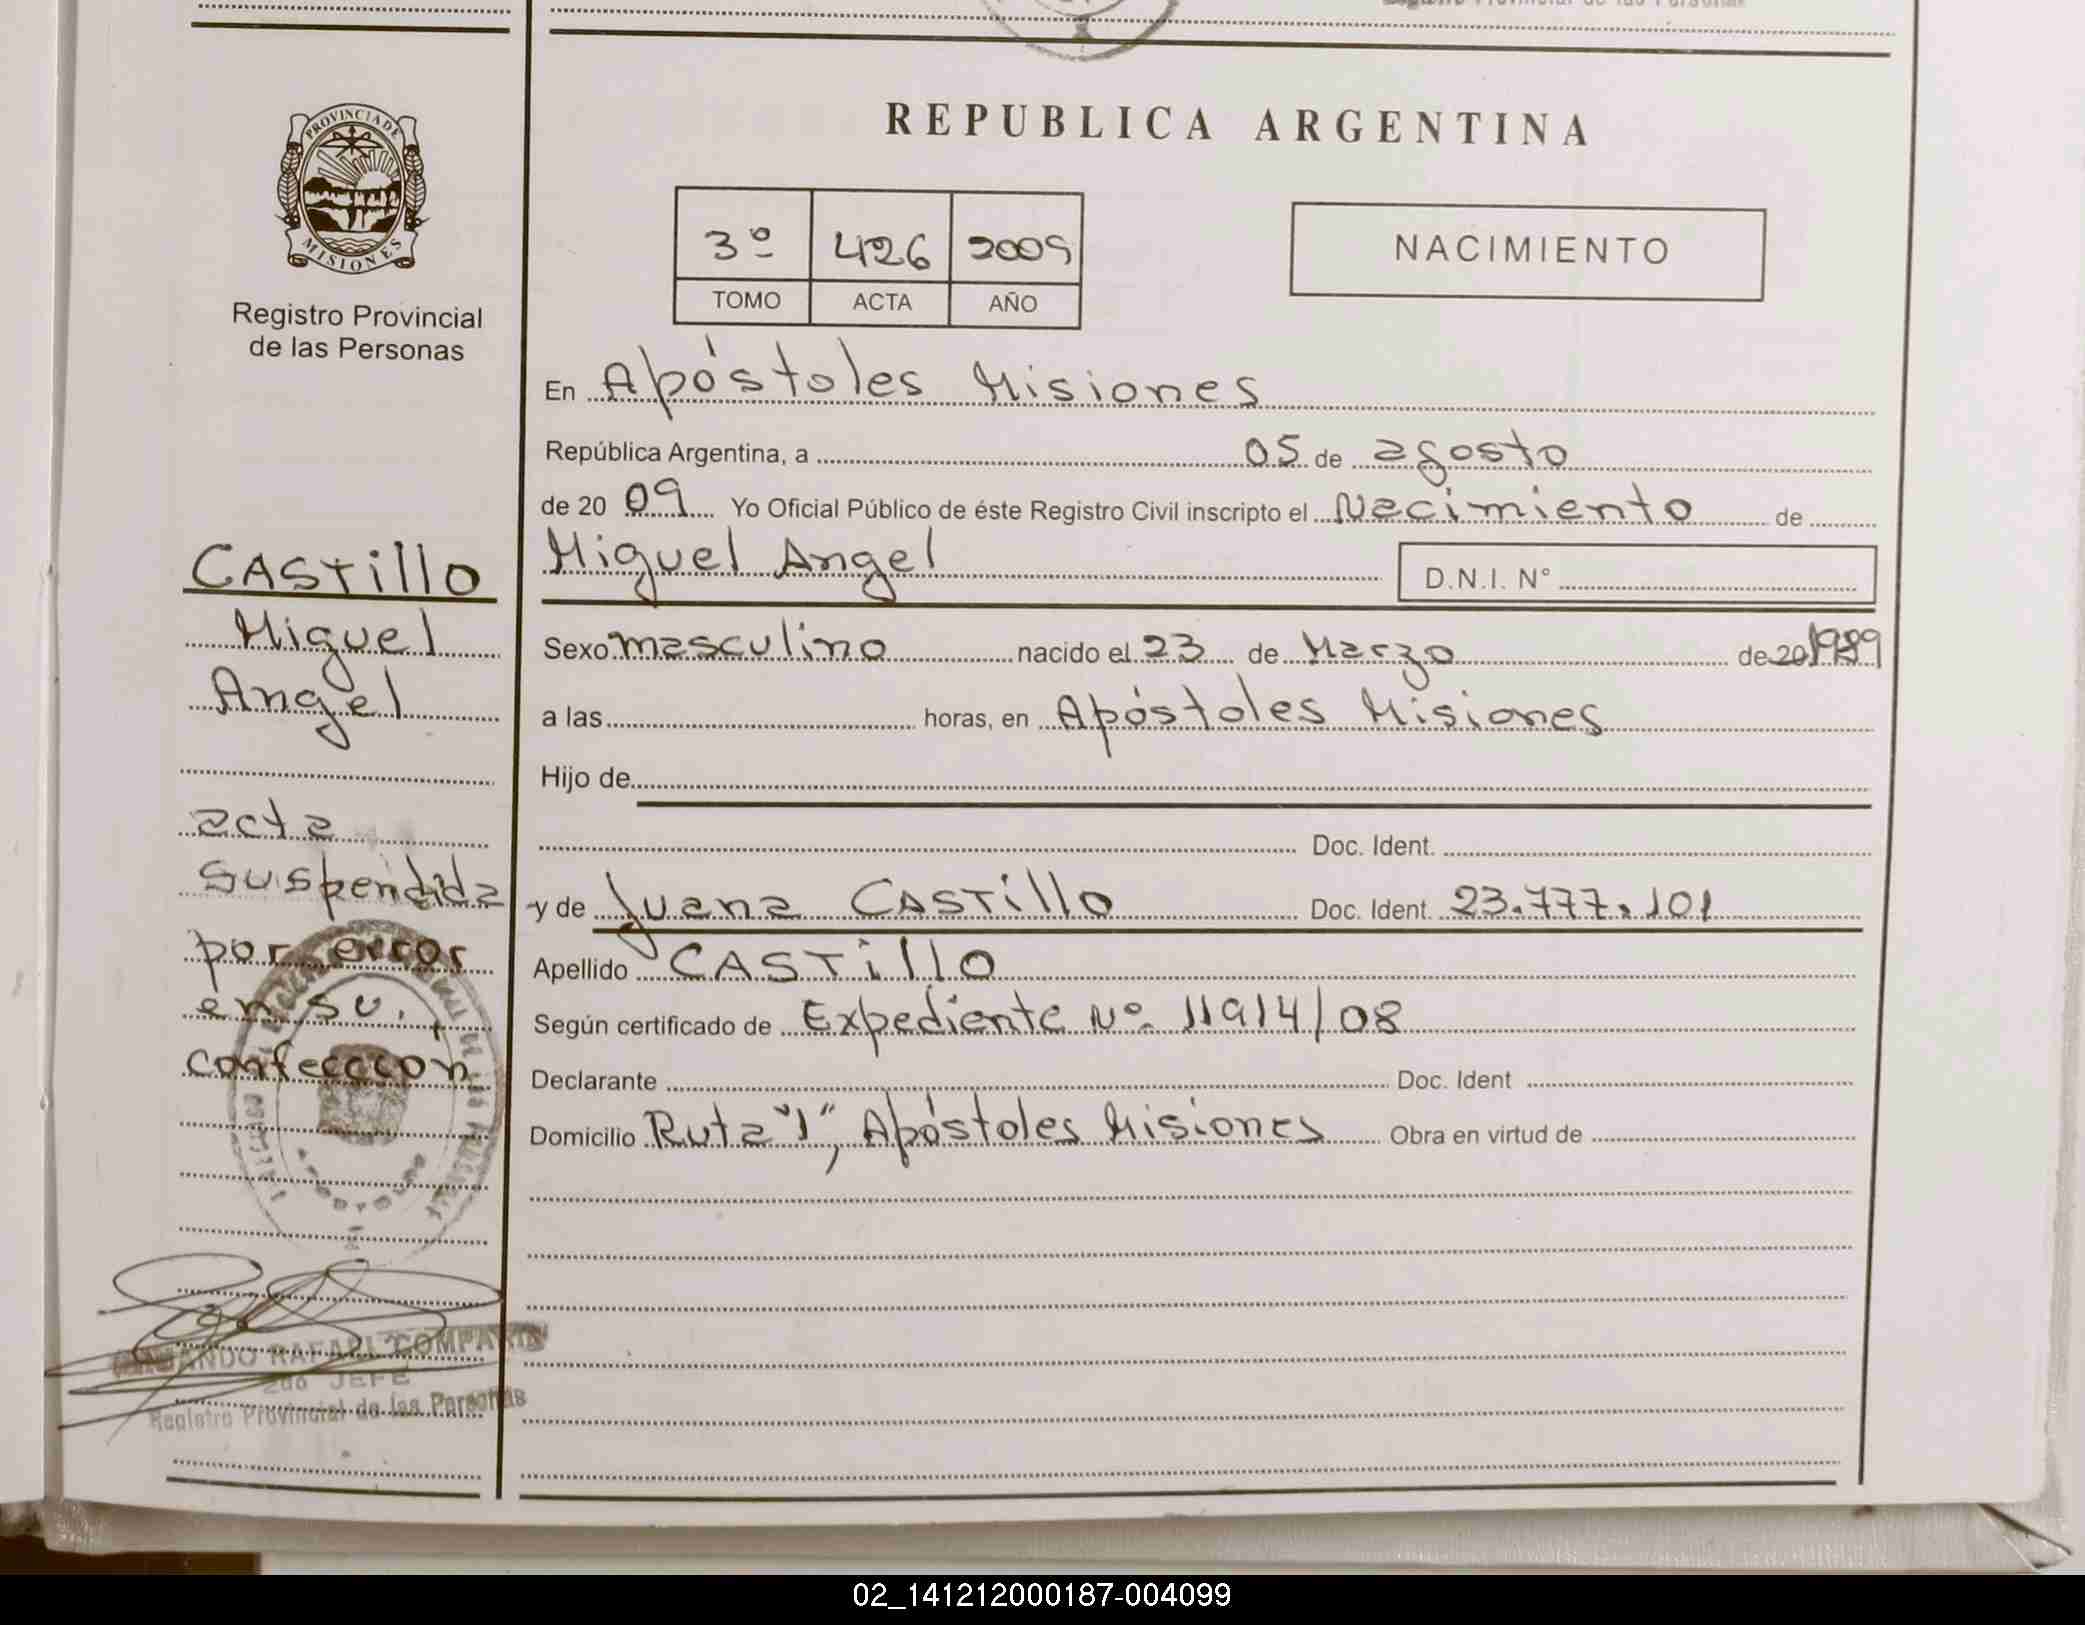 PROVINCIA DE
MISIONES
Registro Provincial
de las Personas
CASTillo
Miguel
Angel
acta
suspendida
por error
en su
confeccion
RAFAEL
2do JEFE
Registro Provincial de las Personas
REPUBLICA ARGENTINA
3º 426 2009
TOMO ACTA AÑO
NACIMIENTO
En Apóstoles Misiones
República Argentina, a 05 de agosto
de 20 09 Yo Oficial Público de éste Registro Civil inscripto el Nacimiento de
Miguel Angel D.N.I. N°
Sexo masculino nacido el 23 de Marzo de 20 1989
a las horas, en Apóstoles Misiones
Hijo de
Doc. Ident.
y de Juana CASTillo Doc. Ident. 23.777.101
Apellido CASTillo
Según certificado de Expediente Nº 11914/08
Declarante Doc. Ident
Domicilio Ruta "1", Apóstoles Misiones Obra en virtud de
02_141212000187-004099